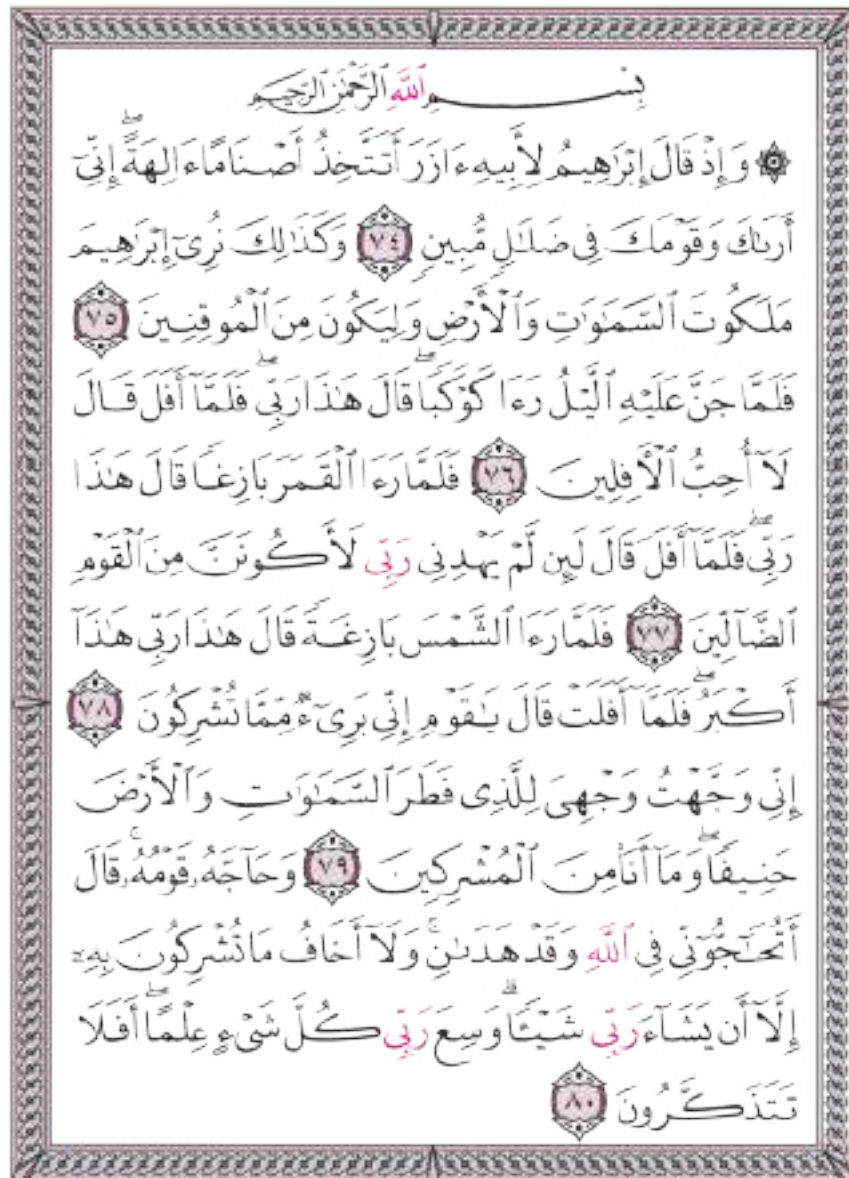 بِسْمِ ٱللَّهِ ٱلرَّحْمَٰنِ ٱلرَّحِيمِ
۞ وَإِذْ قَالَ إِبْرَٰهِيمُ لِأَبِيهِ ءَازَرَ أَتَتَّخِذُ أَصْنَامًا ءَالِهَةً ۖ إِنِّىٓ
أَرَىٰكَ وَقَوْمَكَ فِى ضَلَٰلٍ مُّبِينٍ ٧٤ وَكَذَٰلِكَ نُرِىٓ إِبْرَٰهِيمَ
مَلَكُوتَ ٱلسَّمَٰوَٰتِ وَٱلْأَرْضِ وَلِيَكُونَ مِنَ ٱلْمُوقِنِينَ ٧٥
فَلَمَّا جَنَّ عَلَيْهِ ٱلَّيْلُ رَءَا كَوْكَبًا ۖ قَالَ هَٰذَا رَبِّى ۖ فَلَمَّآ أَفَلَ قَالَ
لَآ أُحِبُّ ٱلْأٓفِلِينَ ٧٦ فَلَمَّا رَءَا ٱلْقَمَرَ بَازِغًا قَالَ هَٰذَا
رَبِّى ۖ فَلَمَّآ أَفَلَ قَالَ لَئِن لَّمْ يَهْدِنِى رَبِّى لَأَكُونَنَّ مِنَ ٱلْقَوْمِ
ٱلضَّآلِّينَ ٧٧ فَلَمَّا رَءَا ٱلشَّمْسَ بَازِغَةً قَالَ هَٰذَا رَبِّى هَٰذَآ
أَكْبَرُ ۖ فَلَمَّآ أَفَلَتْ قَالَ يَٰقَوْمِ إِنِّى بَرِىٓءٌ مِّمَّا تُشْرِكُونَ ٧٨
إِنِّى وَجَّهْتُ وَجْهِىَ لِلَّذِى فَطَرَ ٱلسَّمَٰوَٰتِ وَٱلْأَرْضَ
حَنِيفًا ۖ وَمَآ أَنَا۠ مِنَ ٱلْمُشْرِكِينَ ٧٩ وَحَآجَّهُۥ قَوْمُهُۥ ۚ قَالَ
أَتُحَٰٓجُّوٓنِّى فِى ٱللَّهِ وَقَدْ هَدَىٰنِ ۚ وَلَآ أَخَافُ مَا تُشْرِكُونَ بِهِۦٓ
إِلَّآ أَن يَشَآءَ رَبِّى شَيْـًٔا ۗ وَسِعَ رَبِّى كُلَّ شَىْءٍ عِلْمًا ۗ أَفَلَا
تَتَذَكَّرُونَ ٨٠